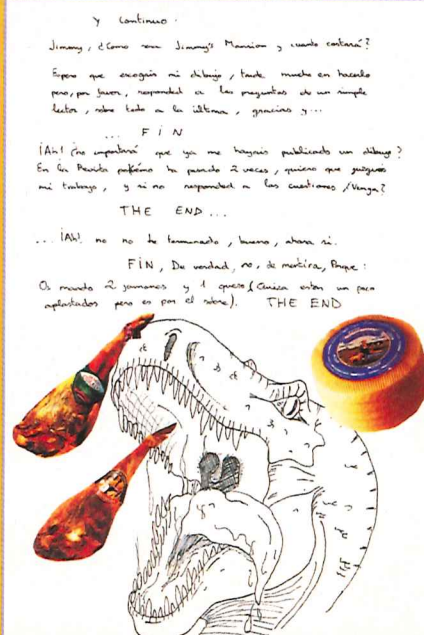 Y Continuo.
Jimmy, ¿Como sera Jimmy's Mansion y cuanto costará?
Espero que escogais mi dibujo, tarde mucho en hacerlo
pero, por favor, responded a las preguntas de un simple
lector, sobre todo a la última, gracias y...
... FIN
¡Ah! ¿no importará que ya me hayais publicado un dibujo?
En la Revista pokémo ha pasado 2 veces, quiero que
mi trabajo, y si no responded a las cuestiones ¿Venga?
THE END...
... ¡Ah! no no he terminado, bueno, ahora si.
FIN, De verdad, no, de mentira, Porque:
Os mando 2 jamones y 1 queso ( estan un poco
aplastados pero es por el sobre). THE END